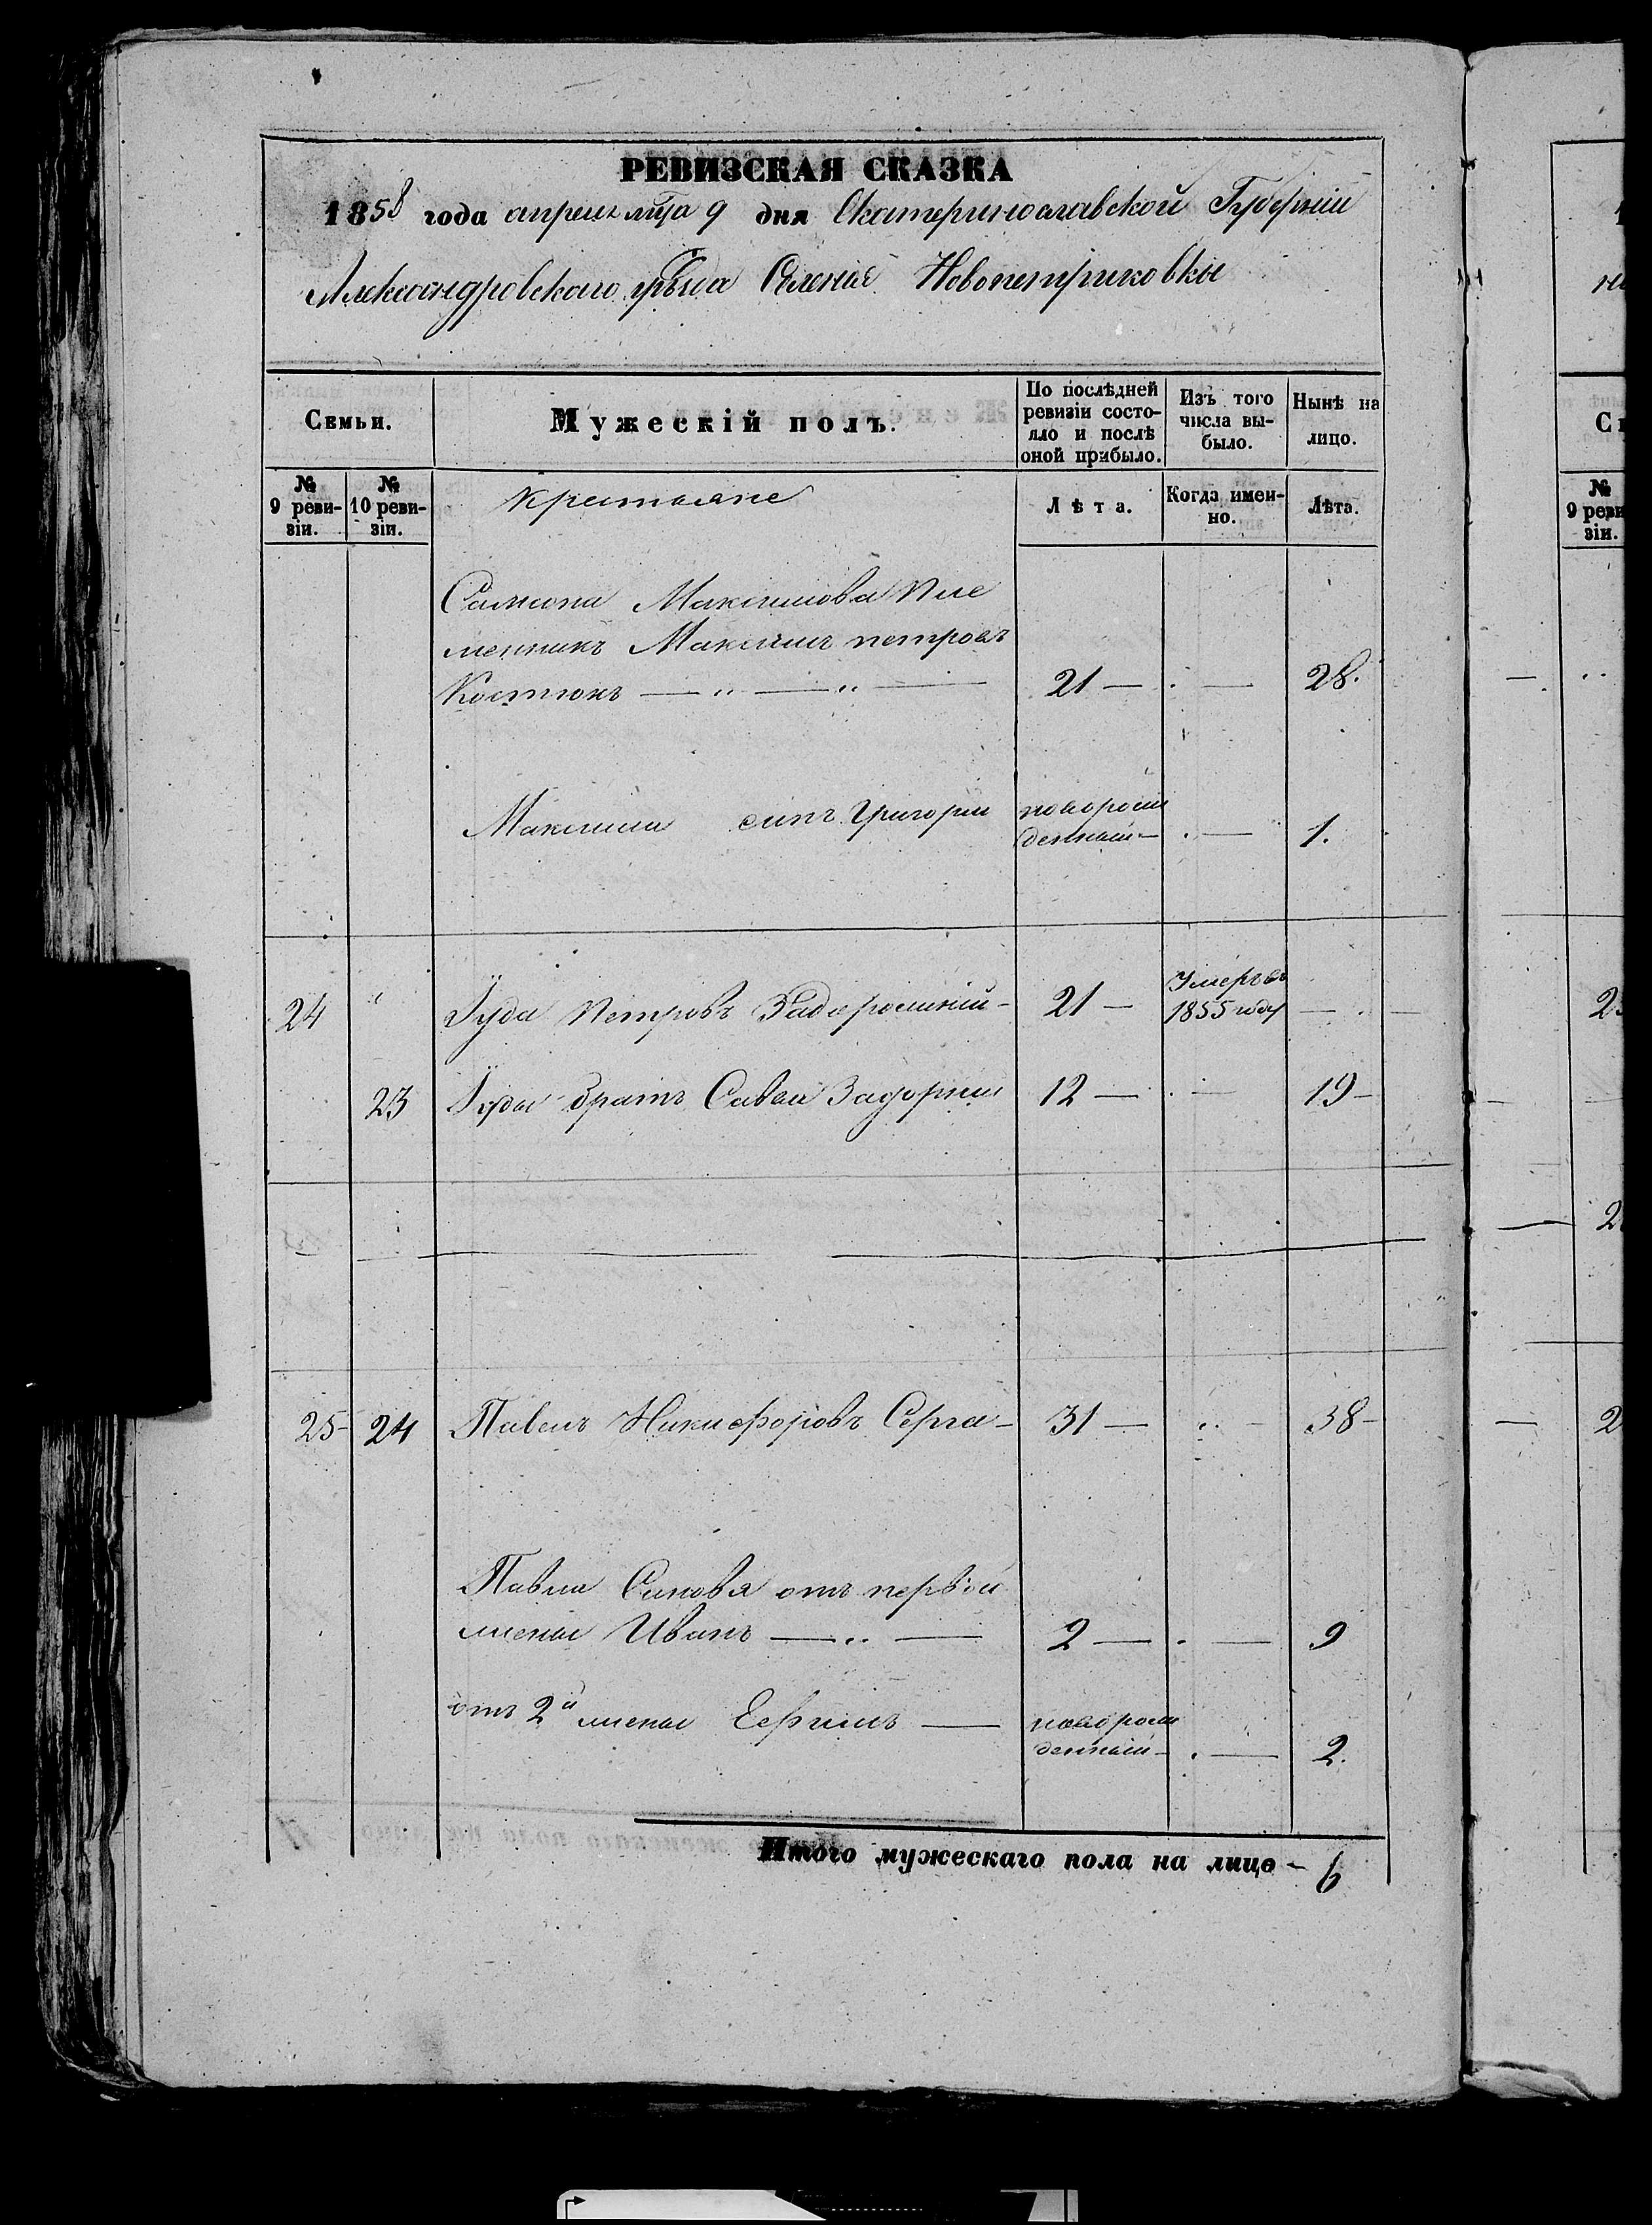 РЕВИЗСКАЯ СКАЗКА
1858 года апреля мца 9 дня Екатеринославской Губерніи
Александровского уѣзда Селенія Новопетриковки
Семьи.
Мужескій полъ.
По послѣдней ревизіи состояло и послѣ оной прибыло.
Изъ того числа выбыло.
Нынѣ на лицо.
№ 9 ревизіи.
№ 10 ревизіи.
крестьяне
Лѣта.
Когда именно.
Лѣта.
Самсона Максимова Пле
менникъ Максимъ петровъ
Костюкъ — „ — „ — 21 — . — 28.
Максима синъ Григорий новорож
денный — . — 1.
24 Іуда Петровъ Задорожний - 21 — Умеръ въ
1855 году — . —
23 Іуды братъ Сава Задорний 12 — . — 19 -
25 - 24 Павелъ Никифоровъ Серга - 31 — .. - 38 -
Павла Синовя отъ первой
жены Иванъ — .. — 2 — . — 9
отъ 2й жены Ефимъ — новорож
денный — . — 2.
Итого мужескаго пола на лице - 6
№
9 реви
зіи.